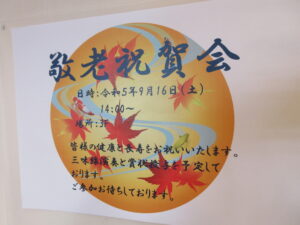 敬老祝賀会
日時:令和5年9月16日(土)
14:00～
場所:3F
皆様の健康と長寿をお祝いいたします。
三味線演奏と賞状授与を予定して
おります。
ご参加お待ちしております。